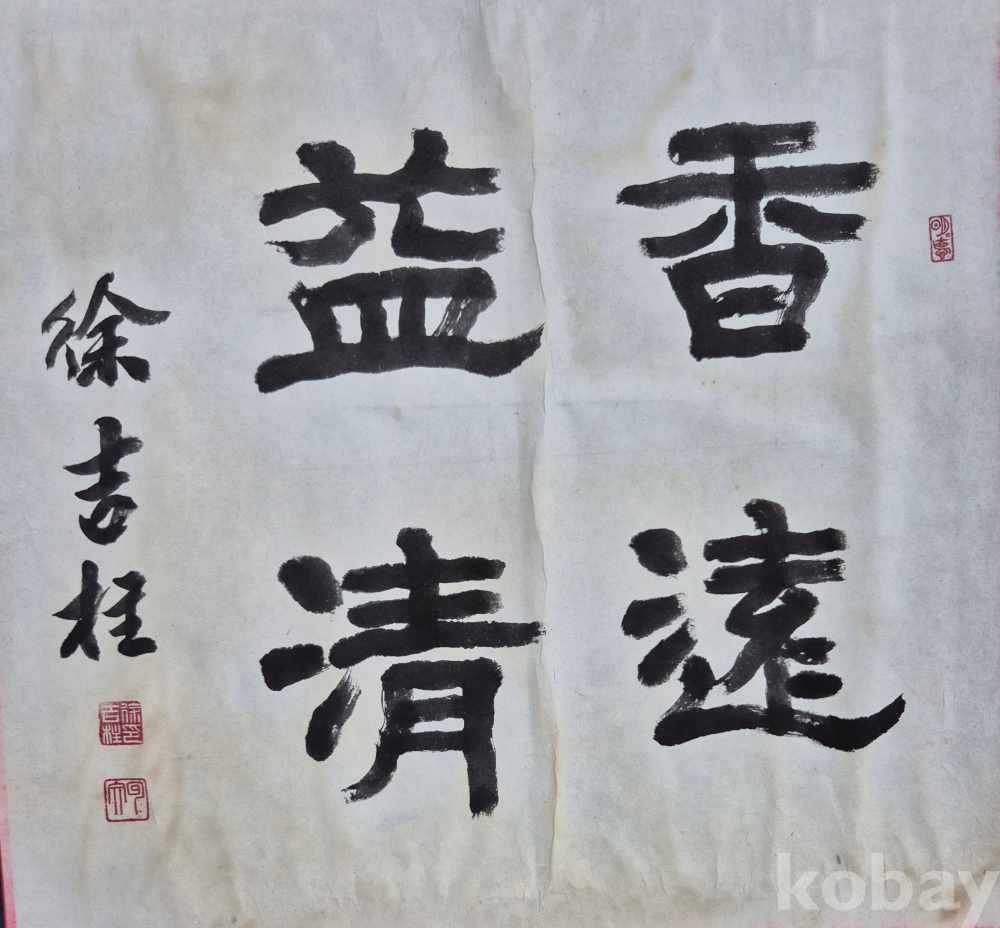 香遠
益清
徐吉柱
kobay